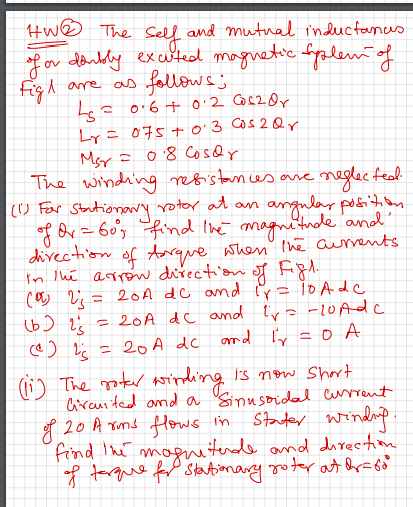 HW② The self and mutual inductances
of a doubly excited magnetic system of
Fig 1 are as follows;
Ls = 0.6 + 0.2 Cos2θr
Lr = 075 + 0.3 Cos 2θr
Msr = 0.8 Cosθr
The winding resistances are neglected.
(i) For stationary rotor at an angular position
of θr = 60°, find the magnitude and
direction of torque when the currents
in the arrow direction of Fig 1.
(a) is = 20A dc and ir = 10 A dc
(b) is = 20A dc and ir = -10A dc
(c) is = 20A dc and ir = 0 A
(ii) The rotor winding is now short
circuited and a sinusoidal current
of 20 A rms flows in stator winding.
find the magnitude and direction
of torque for stationary rotor at θr=60°